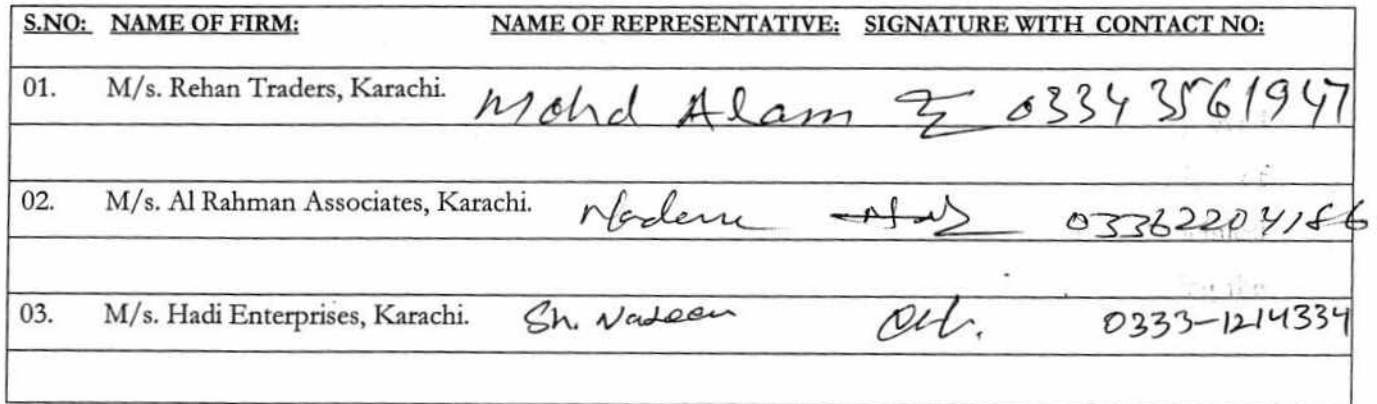 S.NO: NAME OF FIRM: NAME OF REPRESENTATIVE: SIGNATURE WITH CONTACT NO:
01. M/s. Rehan Traders, Karachi. Mohd Alam 0334 3561947
02. M/s. Al Rahman Associates, Karachi. 03362204186
03. M/s. Hadi Enterprises, Karachi. Sh. 0333-1214334